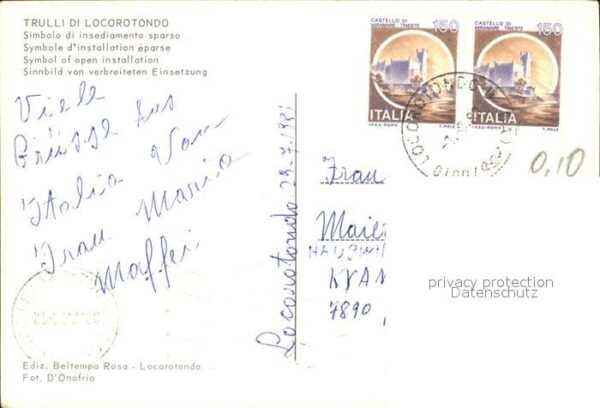 TRULLI DI LOCOROTONDO
Simbolo di insediamento sparso
Symbole d'installation éparse
Symbol of open installation
Sinnbild von verbreiteten Einsetzung
CASTELLO DI
MIRAMARE TRIESTE
150
ITALIA
I.P.Z.S.-ROMA
T. MELE
CASTELLO DI
MIRAMARE TRIESTE
150
ITALIA
I.P.Z.S.-ROMA
T. MELE
LOCOROTONDO
0,10
Viele
Grüsse aus
Italia Von
Frau Maria
Maffei
Locorotondo 29.7.1981
Frau
Maie
7890
privacy protection
Datenschutz
Ediz. Beltempo Rosa - Locorotondo
Fot. D'Onofrio